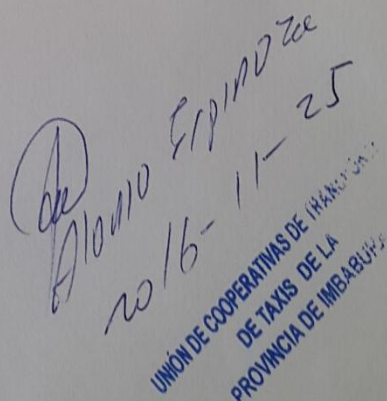 Alonso Espinoza
2016-11-25
UNIÓN DE COOPERATIVAS DE TRANSPORTE
DE TAXIS DE LA
PROVINCIA DE IMBABURA